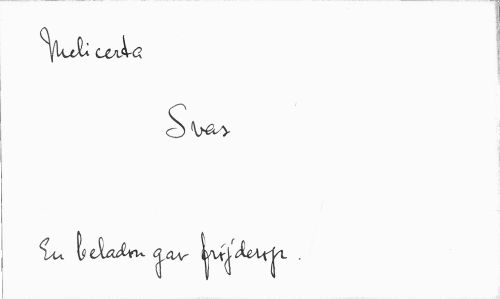 Melicerta
Svas
En beladon gav fröjderop.